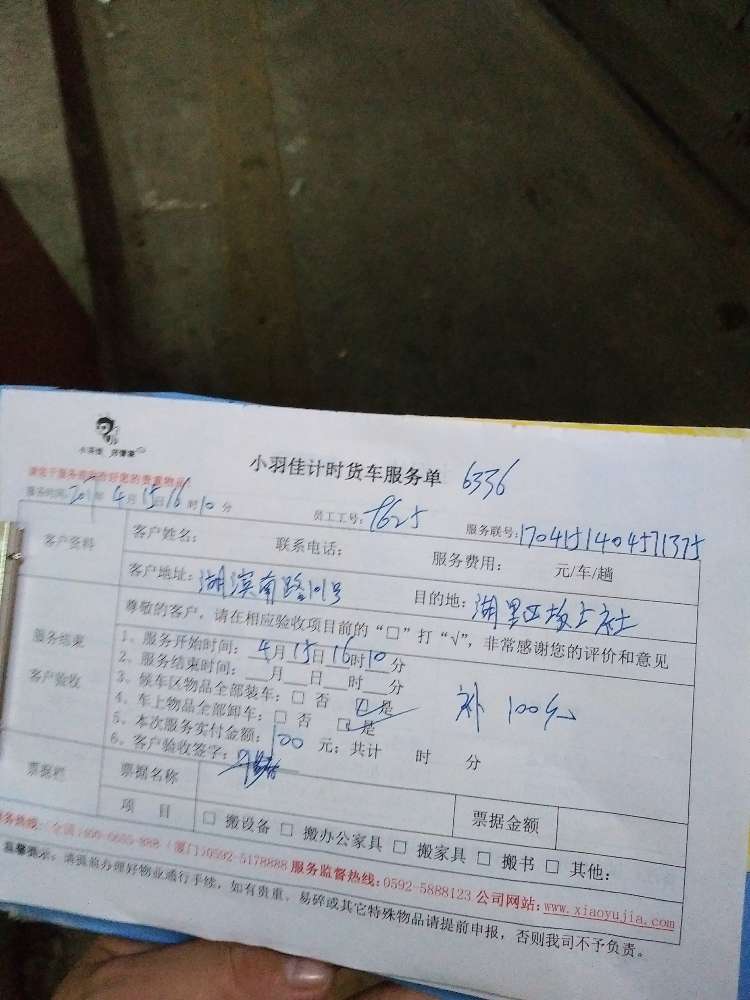 小羽佳 好管家
小羽佳计时货车服务单 6336
请在于服务前保存好您的贵重物品
服务时间: 2017年4月15日16时10分 员工工号: 8625 服务联号: 1704151404571375
客户资料
客户姓名: 联系电话: 服务费用: 元/车/趟
客户地址: 湖滨南路101号 目的地: 湖里区坂上社
服务结束
客户验收
尊敬的客户，请在相应验收项目前的“□”打“√”，非常感谢您的评价和意见
1、服务开始时间: 4月15日16时10分
2、服务结束时间: __月__日__时__分
3、候车区物品全部装车: □ 否 ☑是
4、车上物品全部卸车: □ 否 ☑是
补 100元
5、本次服务实付金额: 100 元; 共计 时 分
6、客户验收签字:
票据栏
票据名称 票据金额
项 目 □ 搬设备 □ 搬办公家具 □ 搬家具 □ 搬书 □ 其他:
服务热线: 全国:400-0605-888 (厦门)0592-5178888 服务监督热线:0592-5888123 公司网站:www.xiaoyujia.com
温馨提示: 请提前办理好物业通行手续，如有贵重、易碎或其它特殊物品请提前申报，否则我司不予负责。